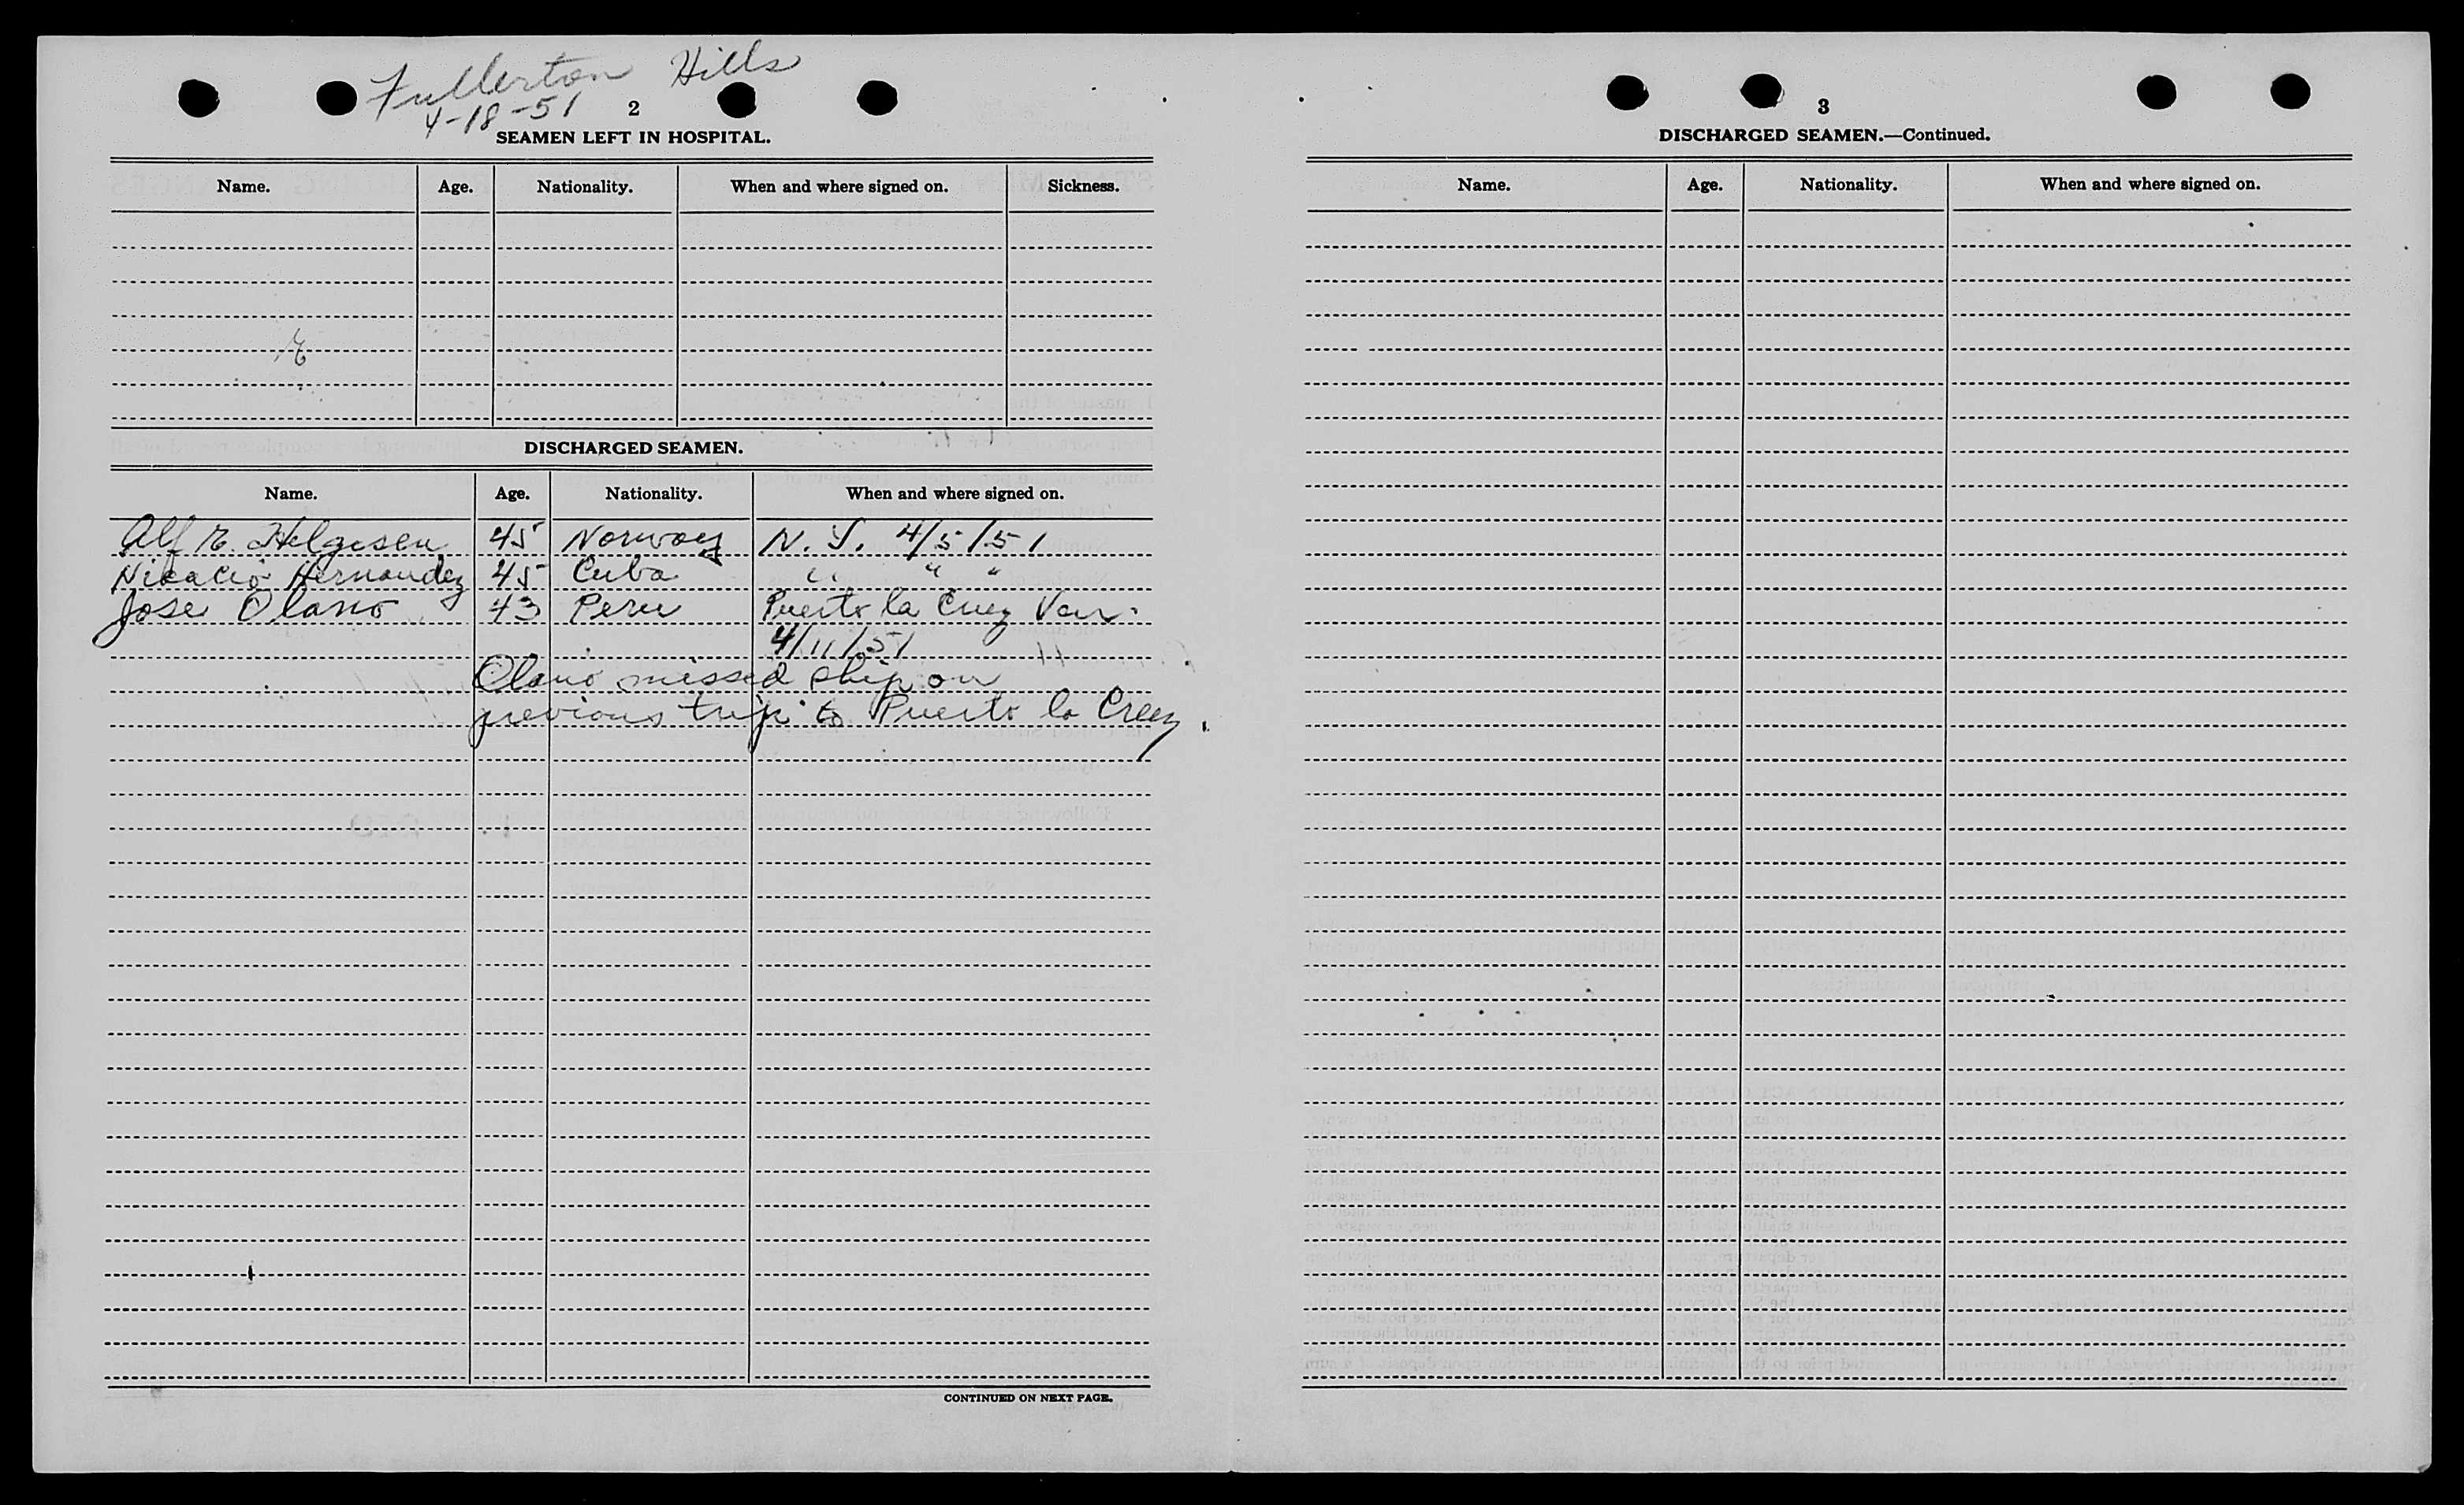 Fullerton Hills
4-18-51
2
SEAMEN LEFT IN HOSPITAL.
Name. Age. Nationality. When and where signed on. Sickness.
DISCHARGED SEAMEN.
Name. Age. Nationality. When and where signed on.
Alf E. Helgesen 45 Norway N. Y. 4/5/51
Nicacio Hernandez 45 Cuba " " "
Jose Olano 43 Peru Puerto la Cruz Ven.
4/11/51
Olano missed ship on
previous trip to Puerto la Cruz.
CONTINUED ON NEXT PAGE.
3
DISCHARGED SEAMEN.—Continued.
Name. Age. Nationality. When and where signed on.